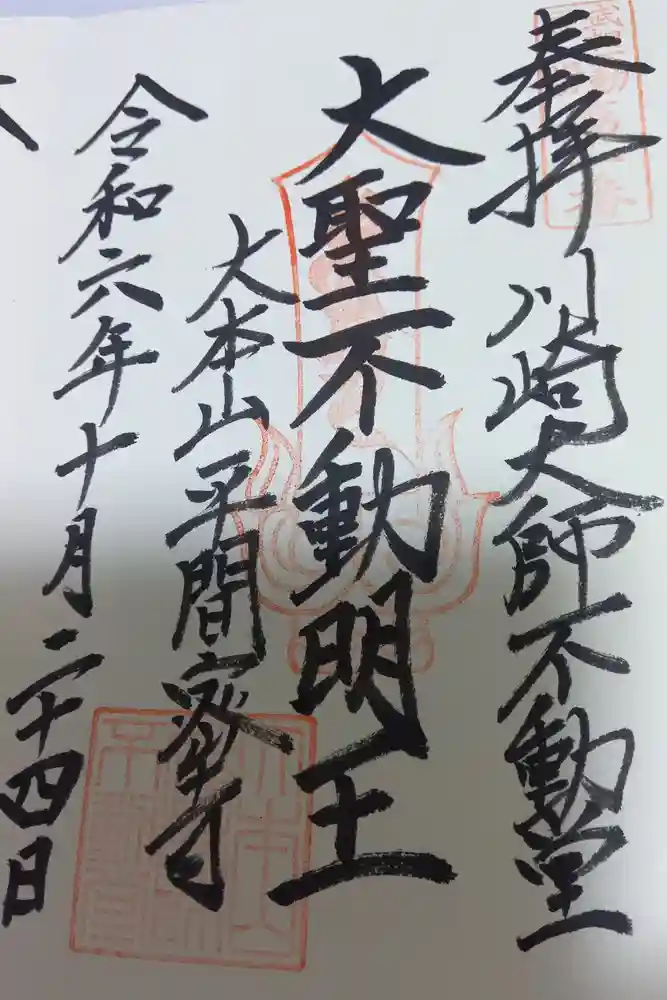 奉拝 川崎大師不動堂
大聖不動明王
大本山平間寺
令和六年十月二十四日